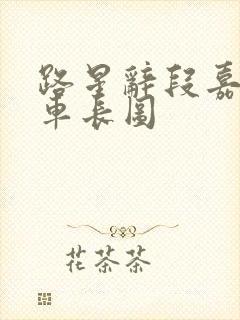 路星辭段嘉
車長圖
花茶茶